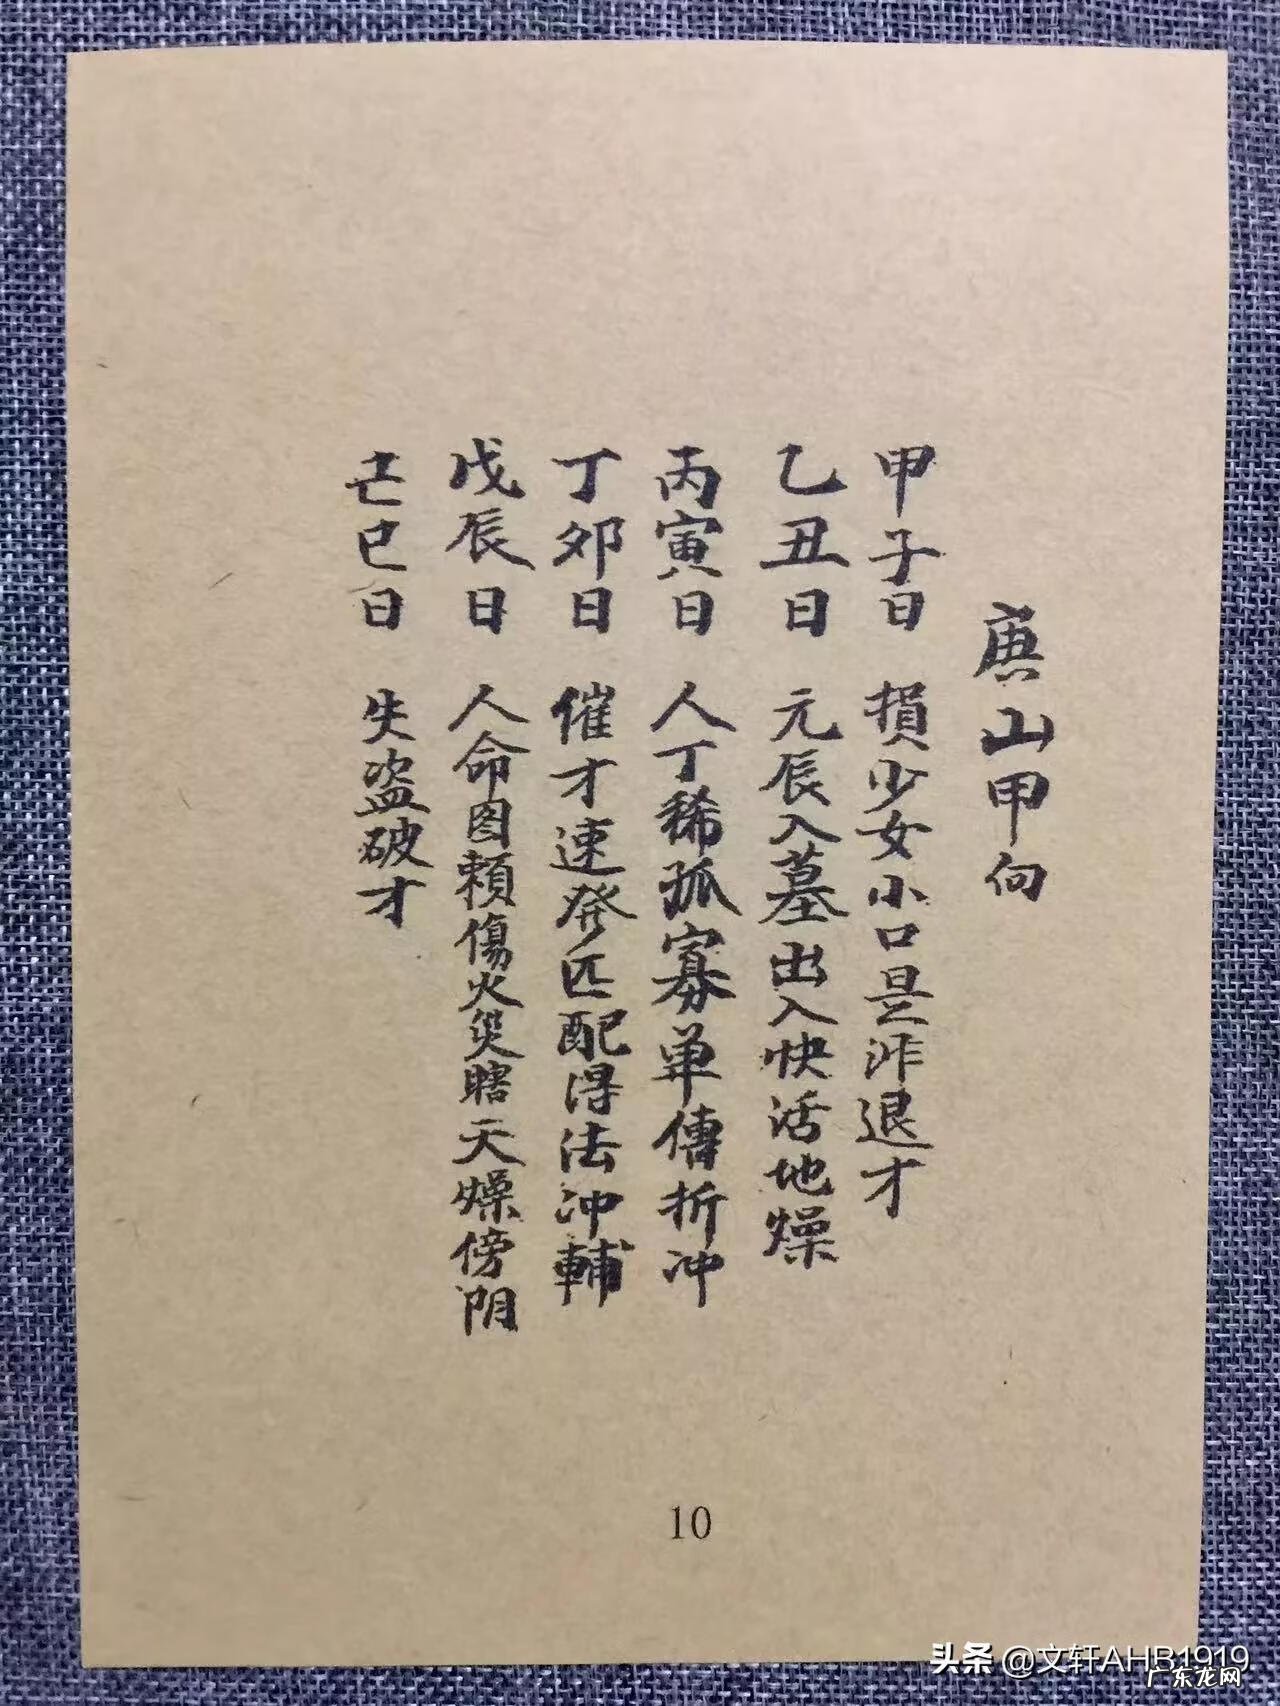 庚山甲向
甲子日 損少女小口是非退才
乙丑日 元辰入墓出入快活地燥
丙寅日 人丁稀孤寡单傳折冲
丁卯日 催才速発匹配得法冲輔
戊辰日 人命图賴傷火災瞎天燥傍阴
己巳日 失盗破才
10
头条 @文轩AHB1919
广东龙网